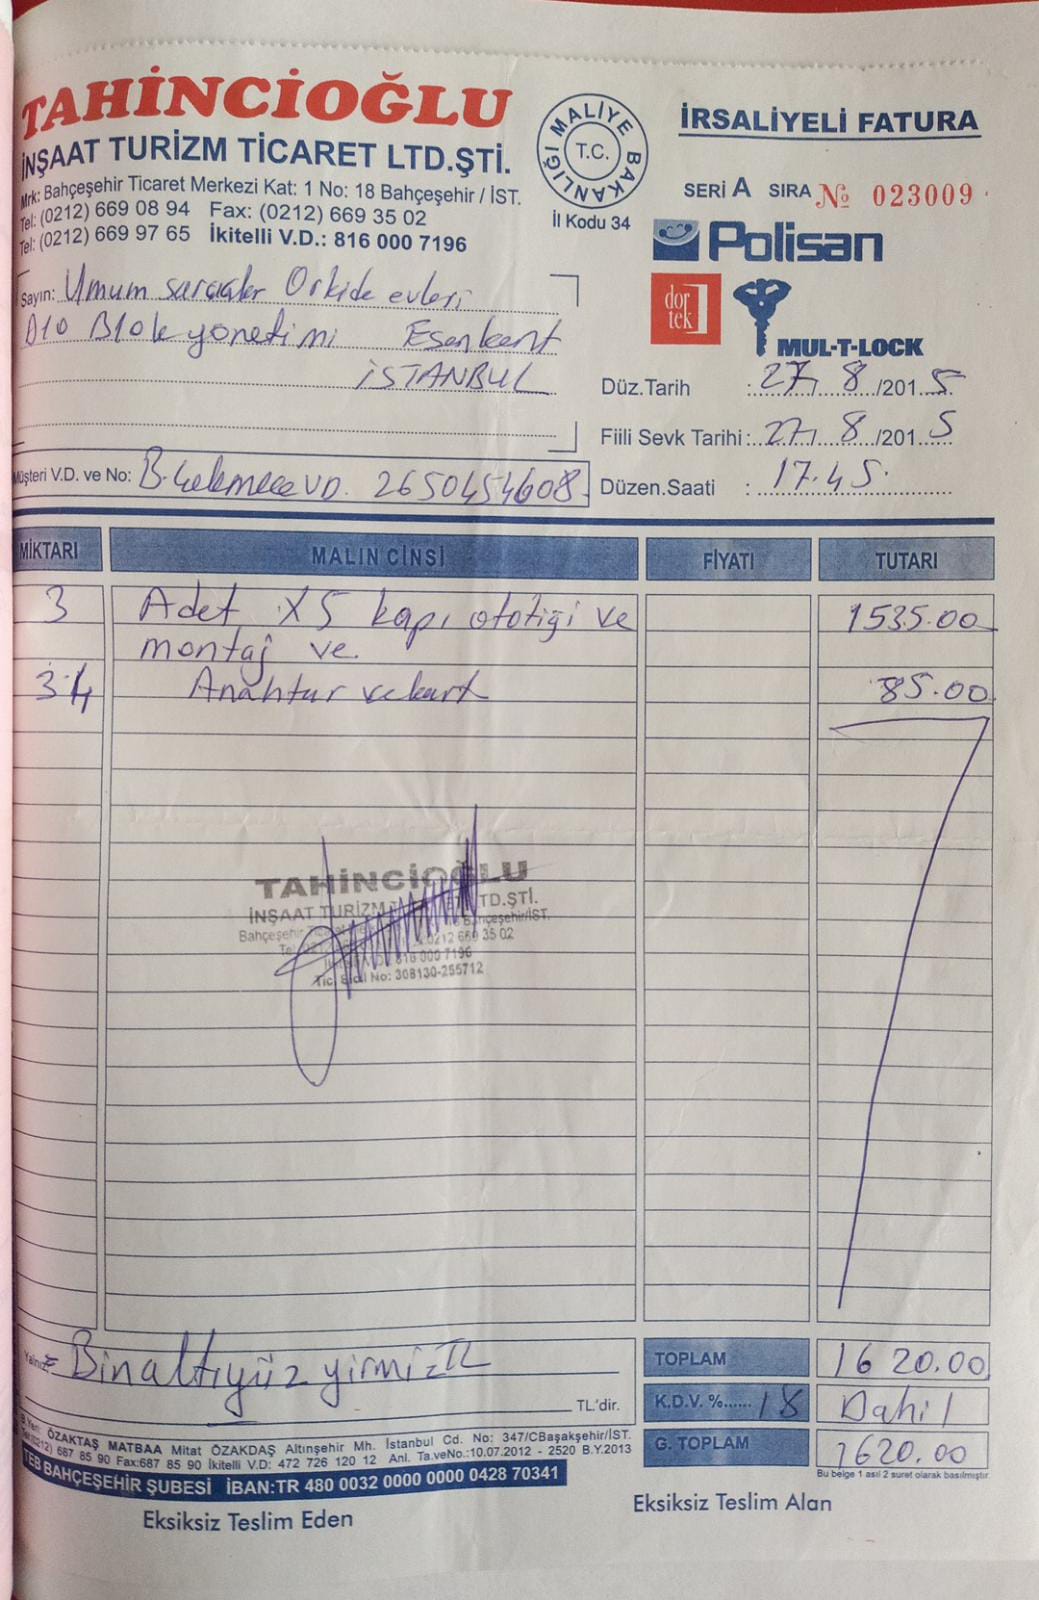 TAHİNCİOĞLU
İNŞAAT TURİZM TİCARET LTD.ŞTİ.
Mrk: Bahçeşehir Ticaret Merkezi Kat: 1 No: 18 Bahçeşehir / İST.
Tel: (0212) 669 08 94 Fax: (0212) 669 35 02
Tel: (0212) 669 97 65 İkitelli V.D.: 816 000 7196
MALİYE BAKANLIĞI
T.C.
İl Kodu 34
İRSALİYELİ FATURA
SERİ A SIRA № 023009
Polisan
dor
tek
MUL-T-LOCK
Sayın: Umum saraçlar Orkide evleri
D10 Blok yönetimi Esenkent
İSTANBUL
Düz.Tarih : 27/8/2015
Fiili Sevk Tarihi: 27/8/2015
Müşteri V.D. ve No: B.Çekmece VD. 2650454608
Düzen.Saati : 17.45
MİKTARI MALIN CİNSİ FİYATI TUTARI
3 Adet X5 kapı ototiği ve 1535.00
montaj ve.
34 Anahtar ve kart 85.00
TAHİNCİOĞLU
İNŞAAT TURİZM LTD.ŞTİ.
Bahçeşehir Bahçeşehir/İST.
0212 669 35 02
816 000 7196
Tic. Sicil No: 308130-255712
Yalnız= Binaltıyüz yirmi TL
TL'dir.
TOPLAM 1620.00
K.D.V. %...... 18 Dahil
G. TOPLAM 1620.00
Bu belge 1 asıl 2 suret olarak basılmıştır.
B.Yeri: ÖZAKTAŞ MATBAA Mitat ÖZAKDAŞ Altınşehir Mh. İstanbul Cd. No: 347/CBaşakşehir/İST.
Tel:(0212) 687 85 90 Fax:687 85 90 İkitelli V.D: 472 726 120 12 Anl. Ta.veNo.:10.07.2012 - 2520 B.Y.2013
TEB BAHÇEŞEHİR ŞUBESİ İBAN:TR 480 0032 0000 0000 0428 70341
Eksiksiz Teslim Eden
Eksiksiz Teslim Alan